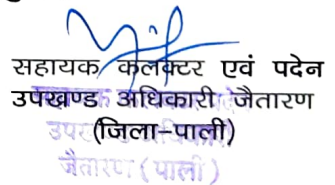 सहायक कलक्टर एवं पदेन
उपखण्ड अधिकारी जैतारण
(जिला-पाली)
उपर
जैतारण (पाली)